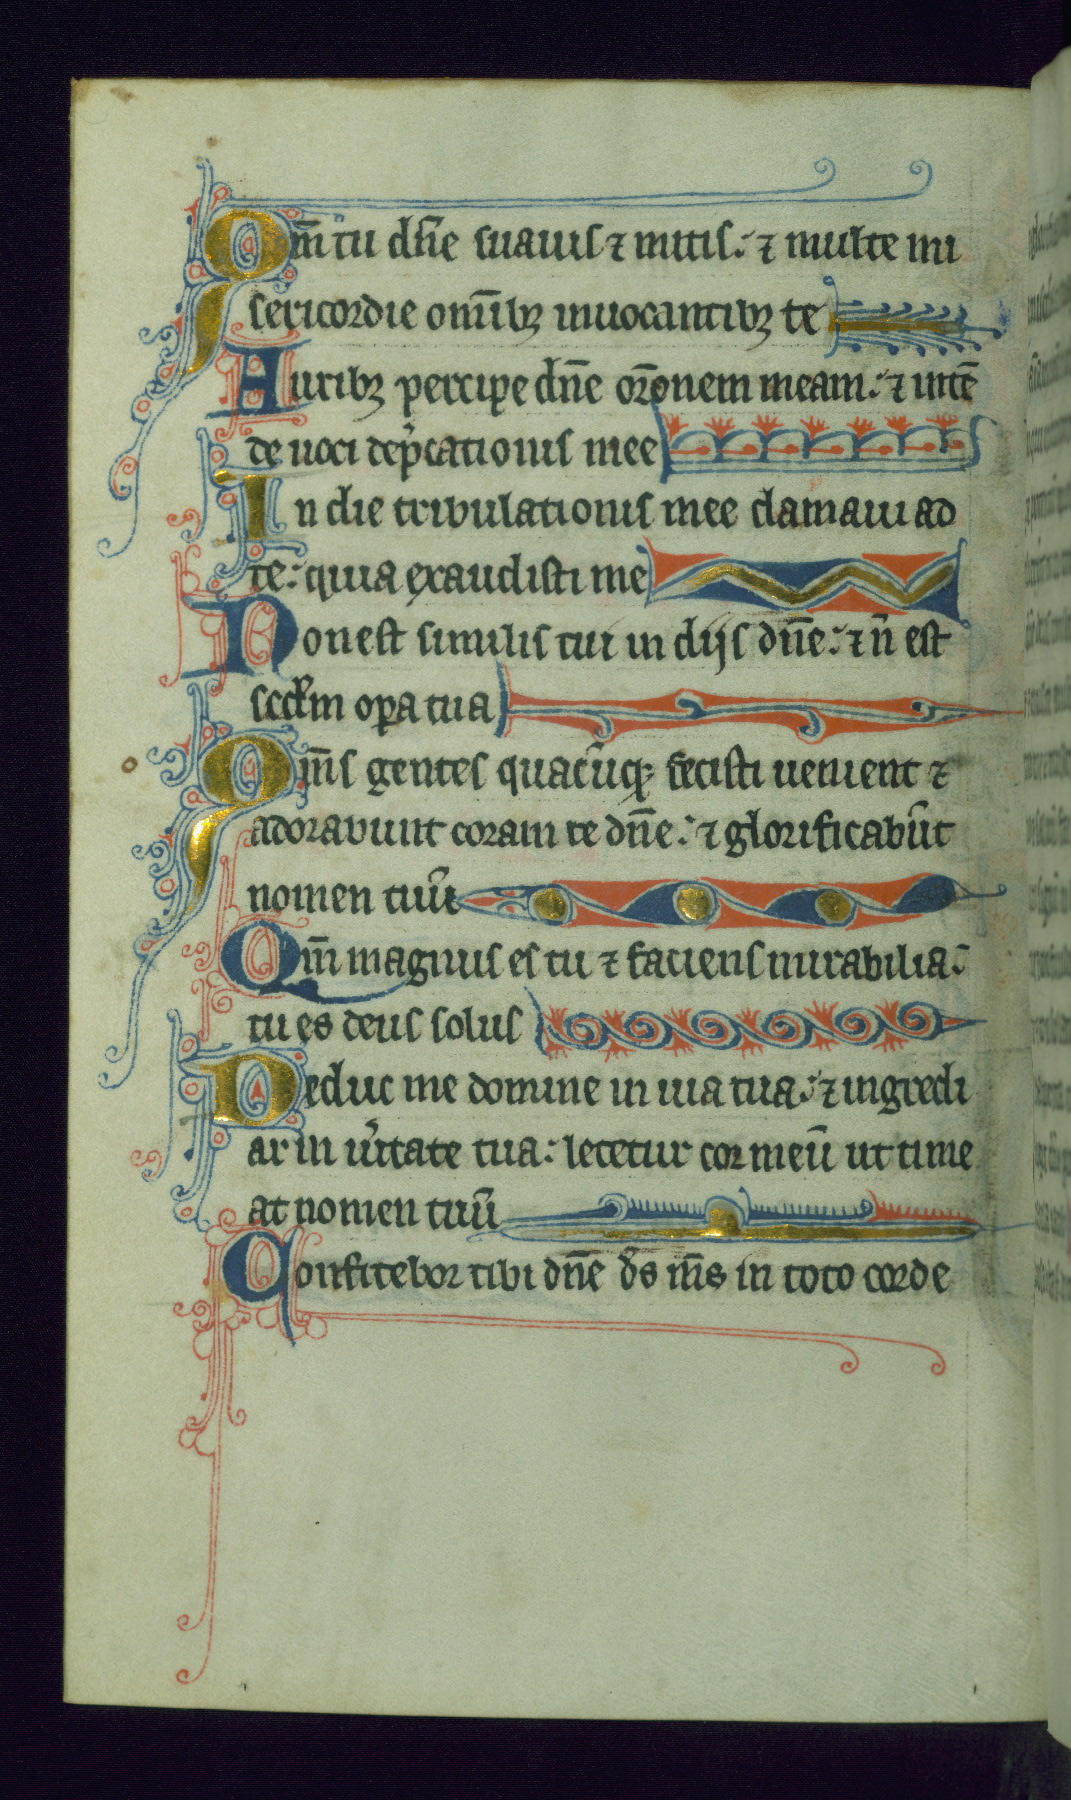 Qm̄ tu dn̄e suauis ⁊ mitis: ⁊ multe mi
sericordie omīibꝫ inuocantibꝫ te
Auribꝫ percipe dn̄e or̄onem meam: ⁊ intē
de uoci dep̄cationis mee
In die tribulationis mee clamaui ad
te: quia exaudisti me
Non est similis tui in dijs dn̄e: ⁊ n̄ est
scd̄m oꝑa tua
Om̄s gentes quacūqꝫ fecisti uenient ⁊
adorabunt coram te dn̄e: ⁊ glorificabūt
nomen tuū
Qm̄ magnus es tu ⁊ faciens mirabilia:
tu es deus solus
Deduc me domine in uia tua: ⁊ ingredi
ar in ūitate tua: letetur cor meū ut time
at nomen tuū
Confitebor tibi dn̄e ds̄ ms̄ in toto corde